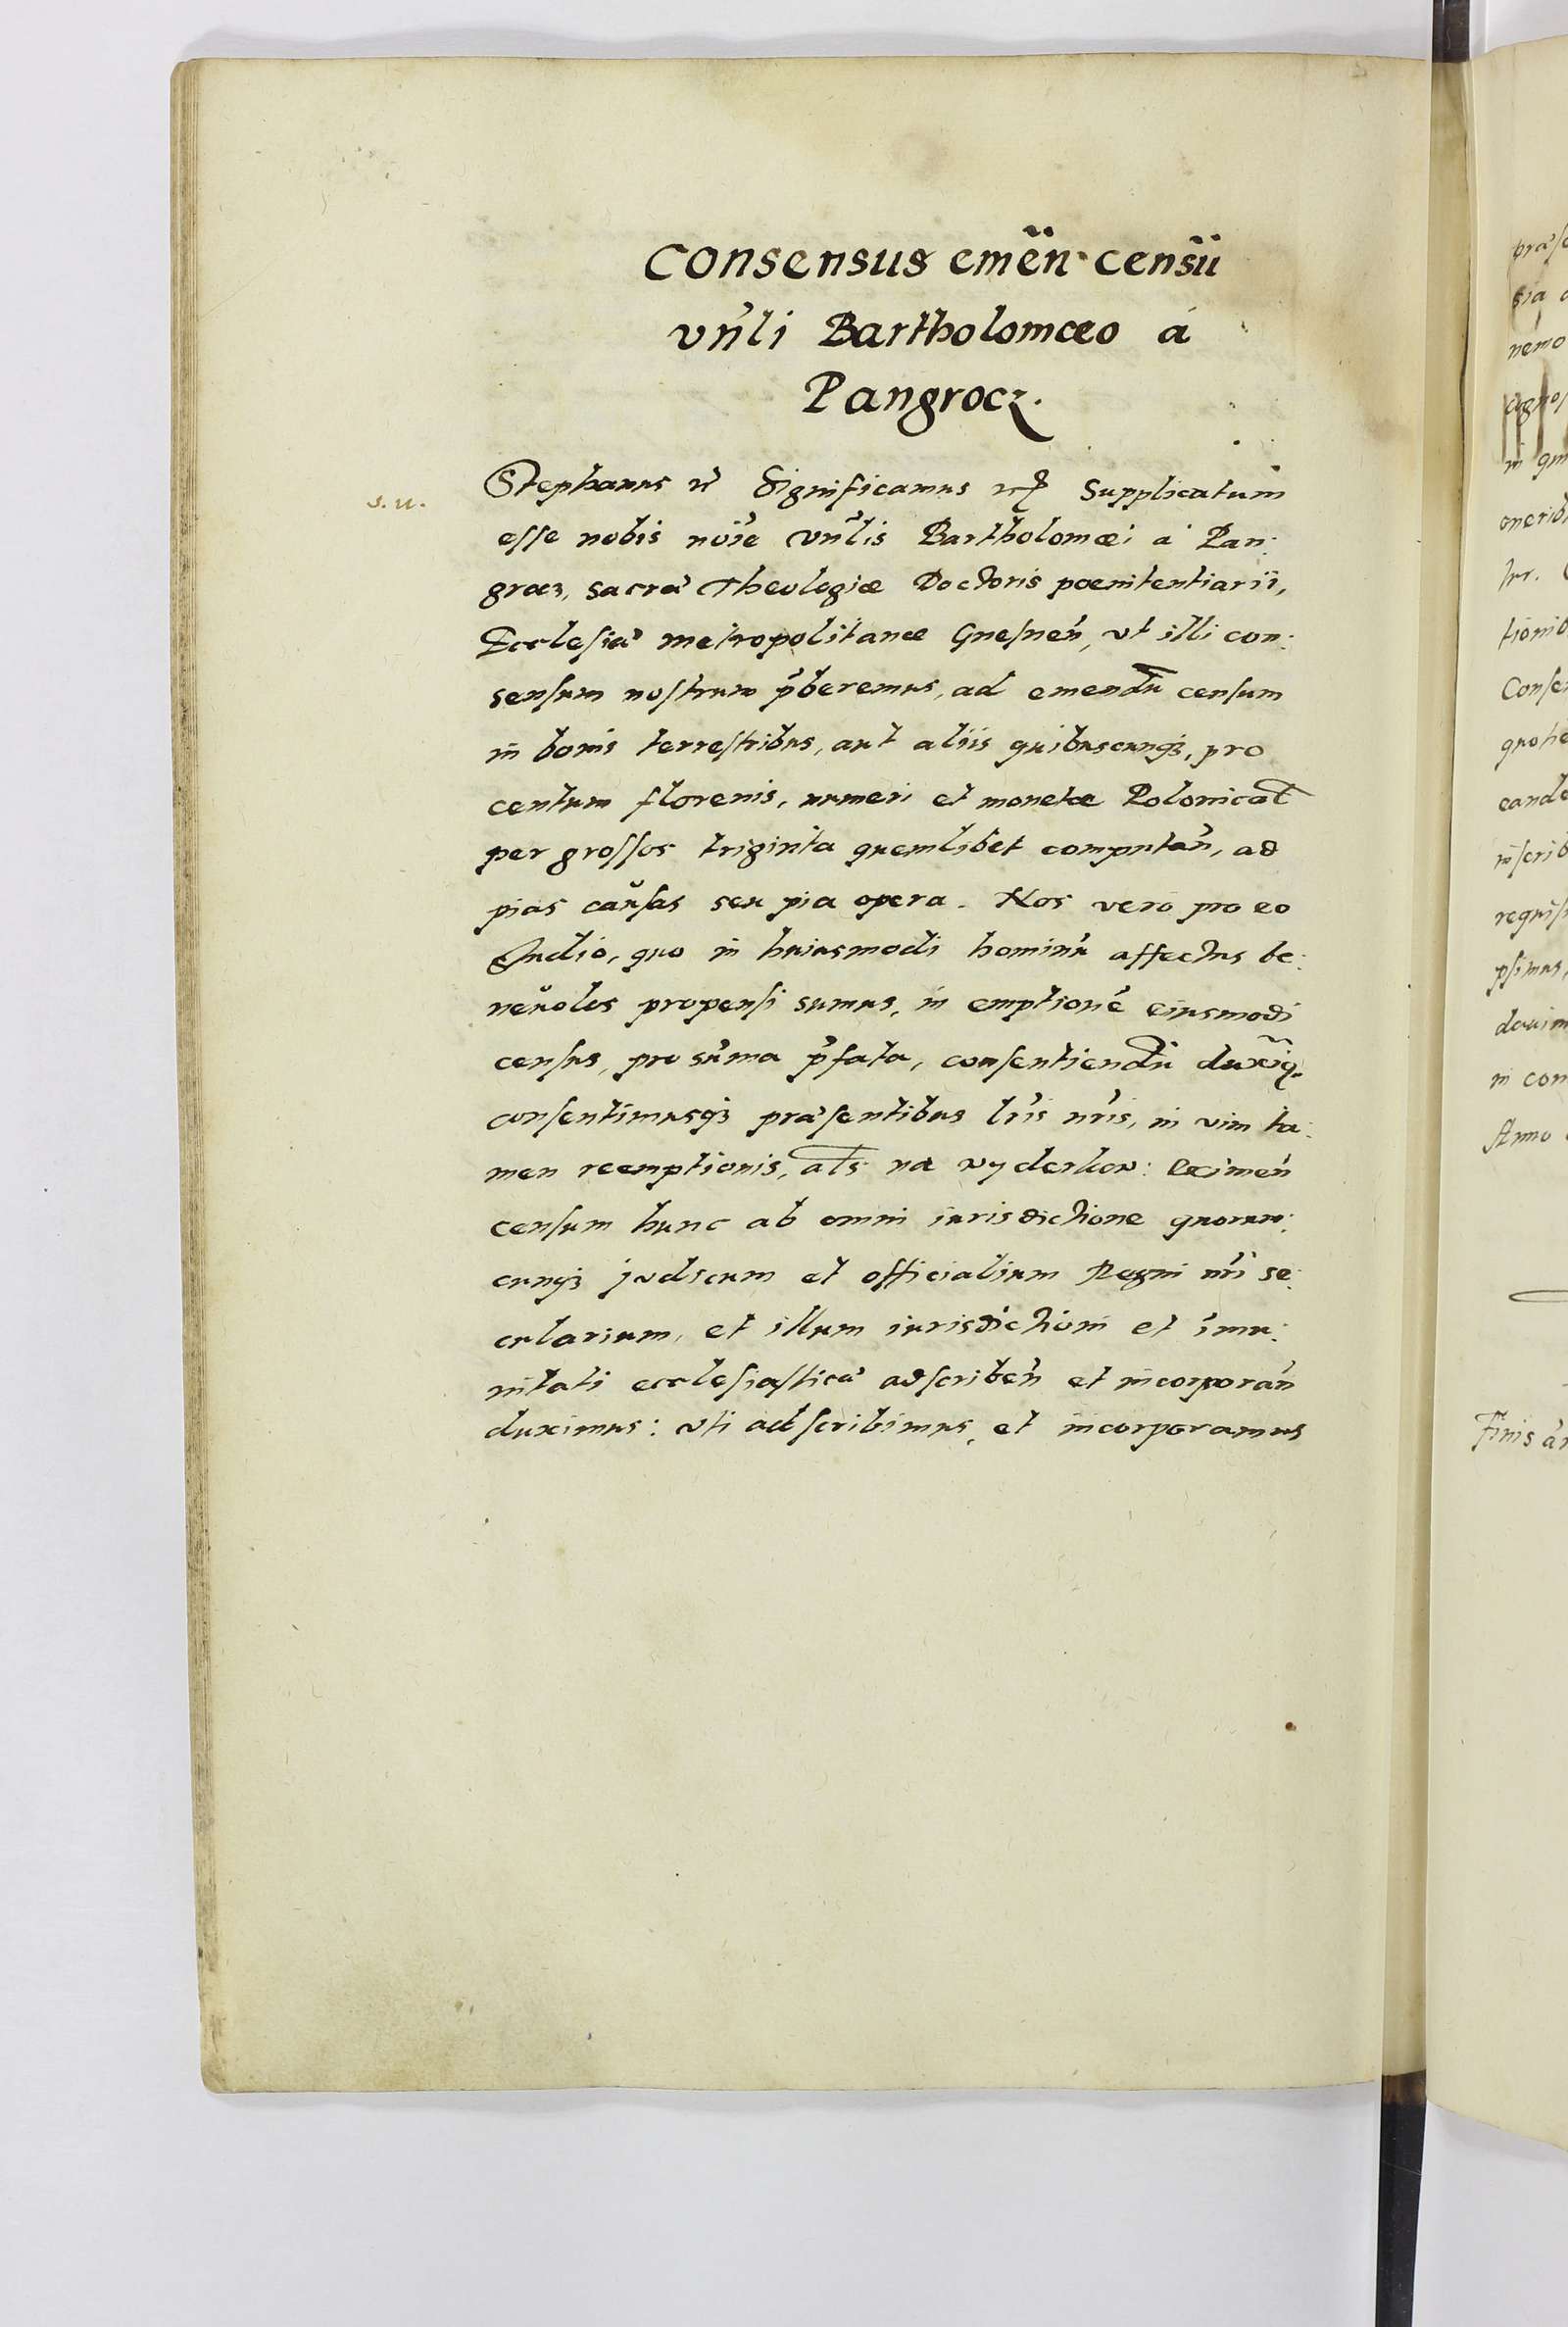 Consensus emen̄ censū
vn̄li Bartholomæo á
Pangrocz.
s. u.
Stephanus Significamus Supplicatum
esse nobis noīe vn̄lis Bartholomæi á Pan:
grocz, sacræ Theologiæ Doctoris poenitentiarii,
Ecclesiæ metropolitanæ Gnesnen̄, vt illi con:
sensum nostrum p̄beremus, ad emendū censum
in bonis terrestribus, aut aliis quibuscunqз, pro
centum florenis, numeri et monetæ Polonical̄
per grossos triginta quemlibet computan̄, ad
pias caŭsas seu pia opera. Nos vero pro eo
studio, quo in huiusmodi hominū affectus be:
nĕuolos propensi sumus, in emptionē eiusmodi
census, pro sūma p̄fata, consentiendū duxiq.
consentimusqз præsentibus lr̄is nr̄is, in vim ta:
men reemptionis, al̄s na wyderkow: eximen̄
censum hunc ab omni iurisdictione quorum:
cunqз judicum et officialium Regni nr̄i se:
cularium, et illum iurisdictioni et im̄u:
nitati ecclesiasticæ adscriben̄ et incorporan̄
duximus: vti adscribimus, et incorporamus